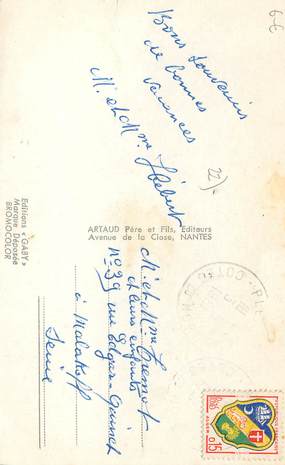 6€
Bons souvenirs
de bonnes
vacances
M. et Mme Hébert
22)
ARTAUD Père et Fils, Éditeurs
Avenue de la Close, NANTES
Editions «GABY»
Marque Déposée
BROMOCOLOR
M. et Mme
et leurs enfants
n° 39 rue Edgar Quinet
à Malakoff
Seine
ALGER
0,15